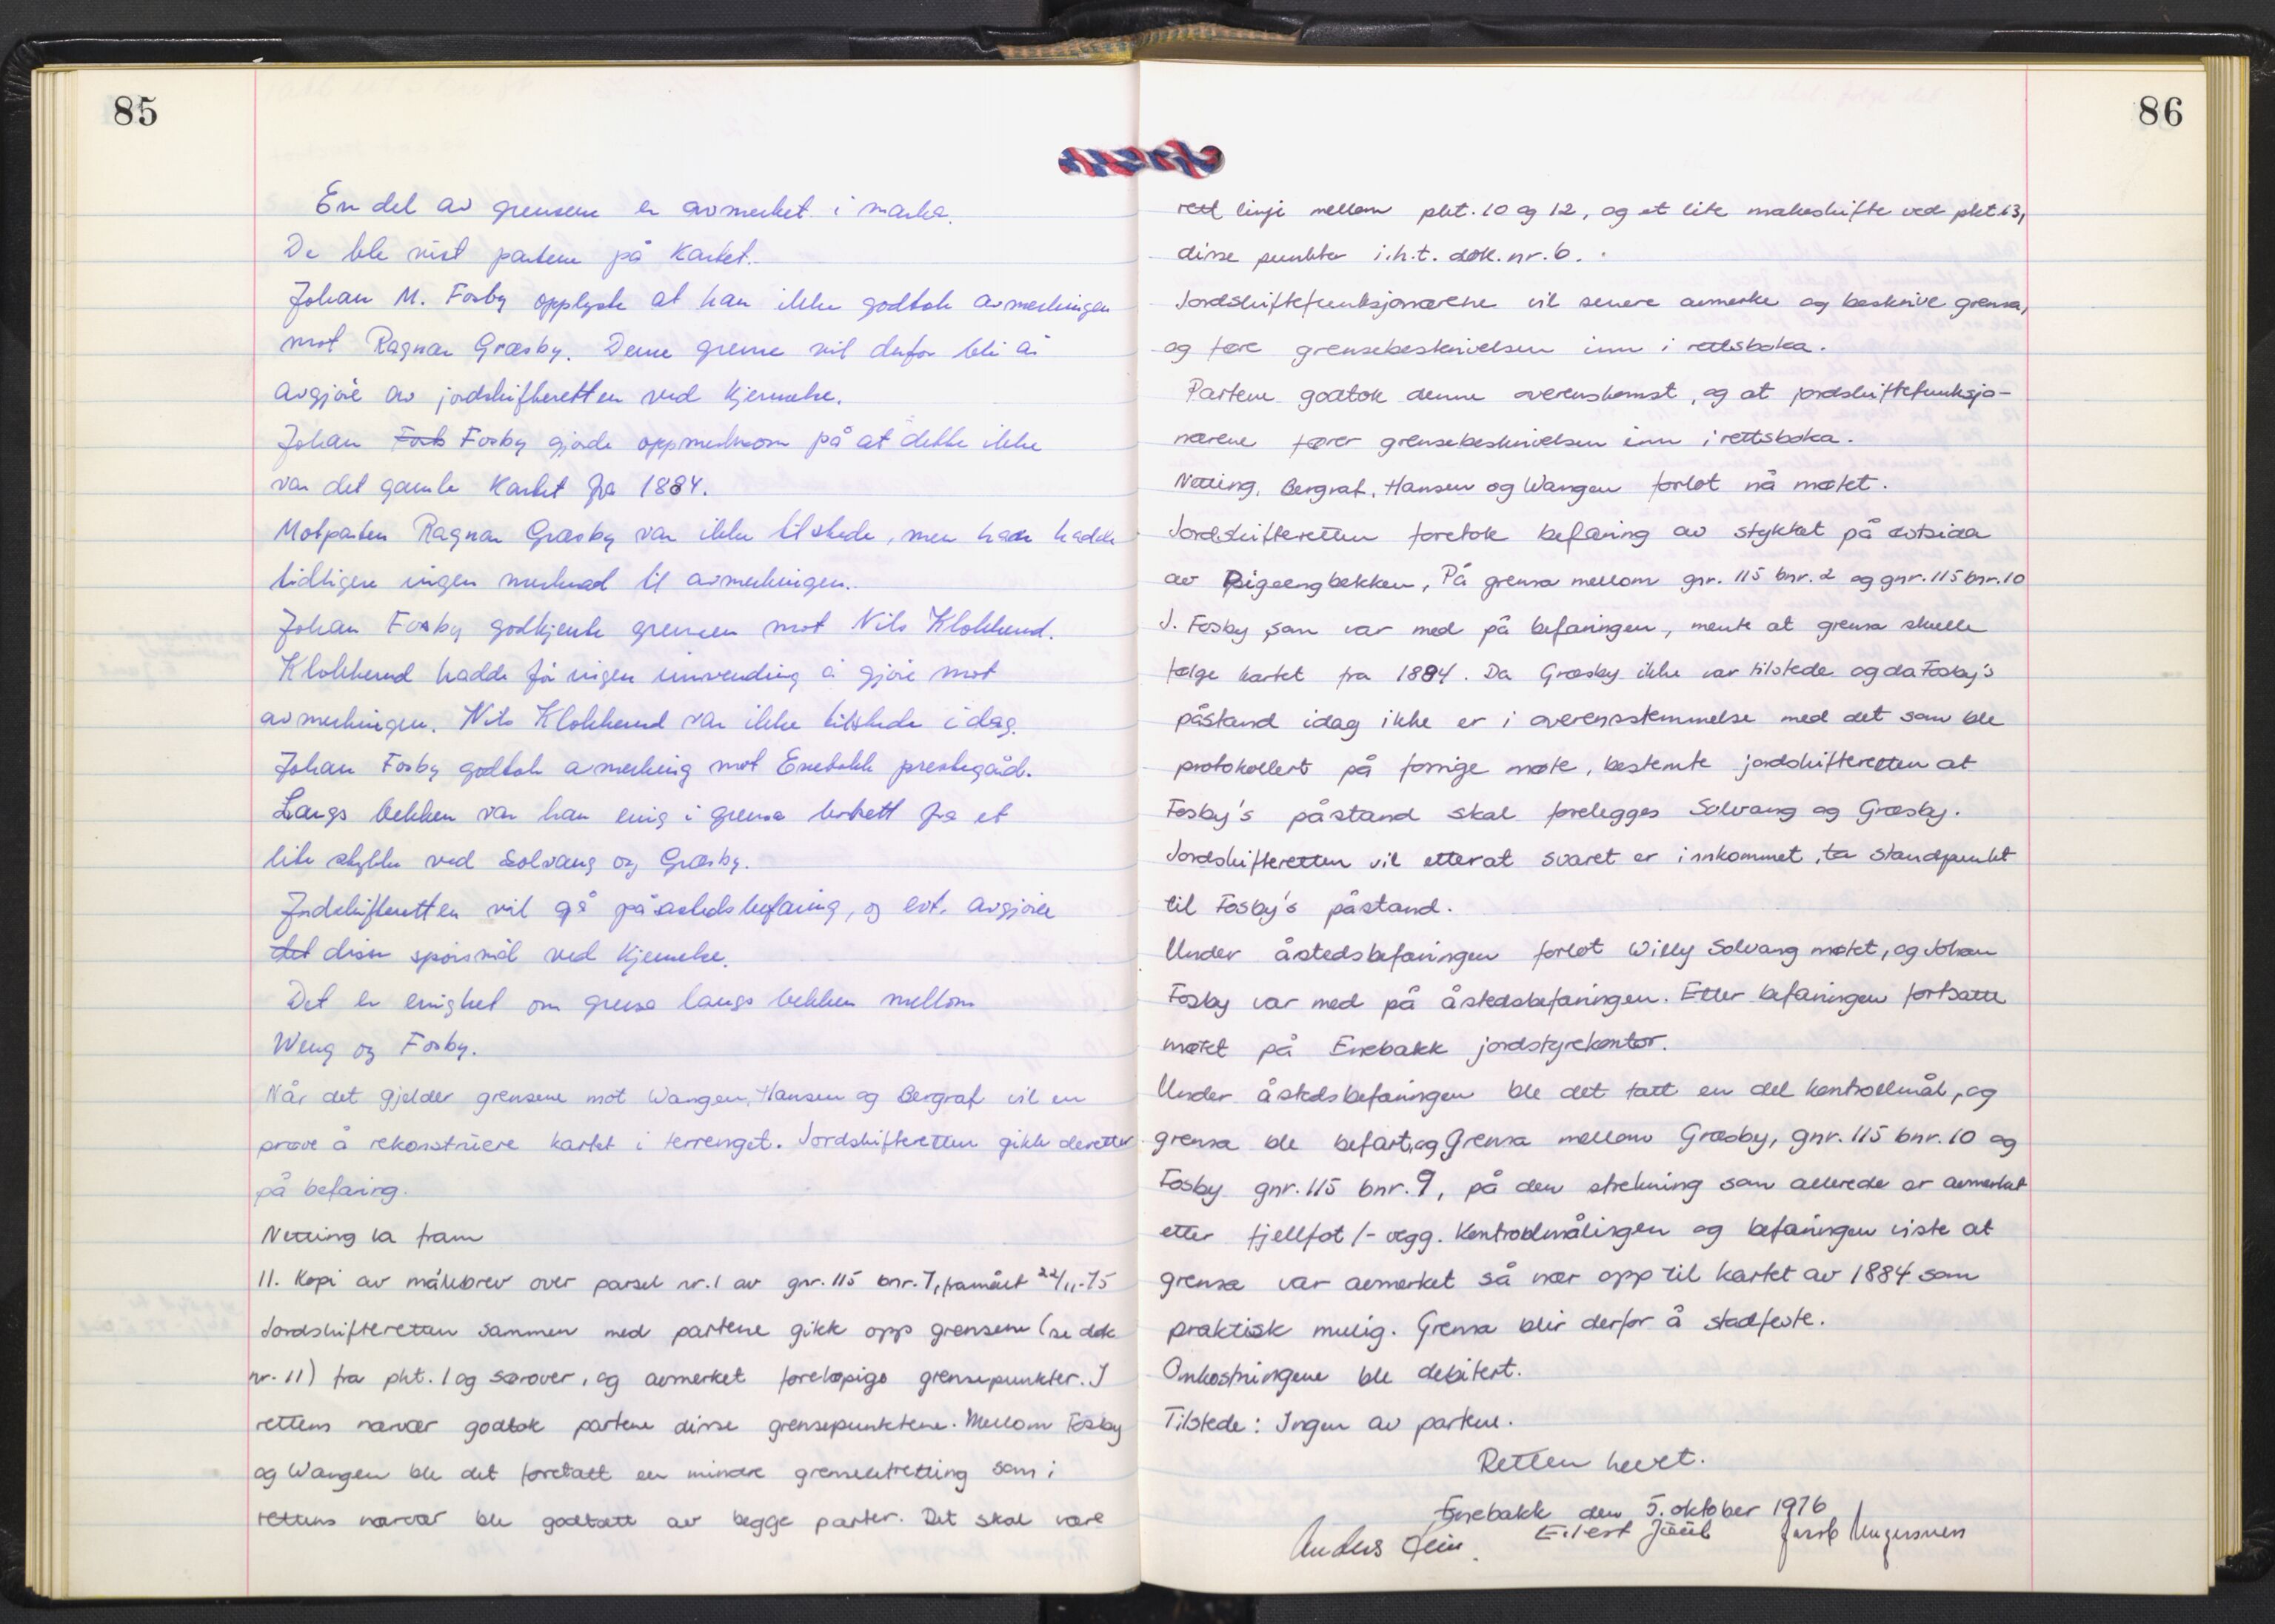 85
En del av grensene er avmerket i marka.
De ble vist partene på kartet.
Johan M. Fosby opplyste at han ikke godtok avmerkingen
mot Ragnar Græsby. Denne grense vil derfor bli å
avgjøre av jordskifteretten ved kjennelse.
Johan Fosb Fosby gjorde oppmerksom på at dette ikke
var det gamle kartet fra 1884.
Motparten Ragnar Græsby var ikke tilstede, men han hadde
tidligere ingen merknad til avmerkingen.
Johan Fosby godkjente grensen mot Nils Klokkerud.
Klokkerud hadde før ingen innvending å gjøre mot
avmerkingen. Nils Klokkerud var ikke tilstede idag.
Johan Fosby godtok avmerking mot Enebakk prestegård.
Langs bekken var han enig i grensa bortsett fra et
lite stykke ved Solvang og Græsby.
Jordskifteretten vil gå på åstedsbefaring, og evt. avgjøre
det disse spørsmål ved kjennelse.
Det er enighet om grensa langs bekken mellom
Weng og Fosby.
Når det gjelder grensene mot Wangen, Hansen og Bergraf vil en
prøve å rekonstruere kartet i terrenget. Jordskifteretten gikk deretter
på befaring.
Netting la fram
11. Kopi av målebrev over parsel nr. 1 av gnr. 115 bnr. 7, framålt 22/11-75
Jordskifteretten sammen med partene gikk opp grensene (se dok
nr. 11) fra pkt. 1 og sørover, og avmerket foreløpige grensepunkter. I
rettens nærvær godtok partene disse grensepunktene. Mellom Fosby
og Wangen ble det foretatt en mindre grenseutretting som i
rettens nærvær ble godtatt av begge parter. Det skal være
86
rett linje mellom pkt. 10 og 12, og et lite makeskifte ved pkt 13,
disse punkter i.h.t. dok. nr. 6.
Jordskiftefunksjonærene vil senere avmerke og beskrive grensa,
og føre grensebeskrivelsen inn i rettsboka.
Partene godtok denne overenskomst, og at jordskiftefunksjo-
nærene fører grensebeskrivelsen inn i rettsboka.
Netting, Bergraf, Hansen og Wangen forlot nå møtet.
Jordskifteretten foretok befaring av stykket på østsida
av Rigeengbekken, På grensa mellom gnr. 115 bnr. 2 og gnr. 115 bnr. 10
J. Fosby som var med på befaringen, mente at grensa skulle
følge kartet fra 1884. Da Græsby ikke var tilstede og da Fosby's
påstand idag ikke er i overensstemmelse med det som ble
protokollert på forrige møte, bestemte jordskifteretten at
Fosby's påstand skal forelegges Solvang og Græsby.
Jordskifteretten vil etterat svaret er innkommet, ta standpunkt
til Fosby's påstand.
Under åstedsbefaringen forlot Willy Solvang møtet, og Johan
Fosby var med på åstedsbefaringen. Etter befaringen fortsatte
møtet på Enebakk jordstyrekontor.
Under åstedsbefaringen ble det tatt en del kontrollmål, og
grensa ble befart, og Grensa mellom Græsby, gnr. 115 bnr. 10 og
Fosby gnr. 115 bnr. 9, på den strekning som allerede er avmerket
etter fjellfot /- vegg. Kontrollmålingen og befaringen viste at
grensa var avmerket så nær opp til kartet av 1884 som
praktisk mulig. Grensa blir derfor å stadfeste.
Omkostningene ble debitert.
Tilstede: Ingen av partene.
Retten hevet.
Enebakk den 5. oktober 1976
Anders Eilert Jacob